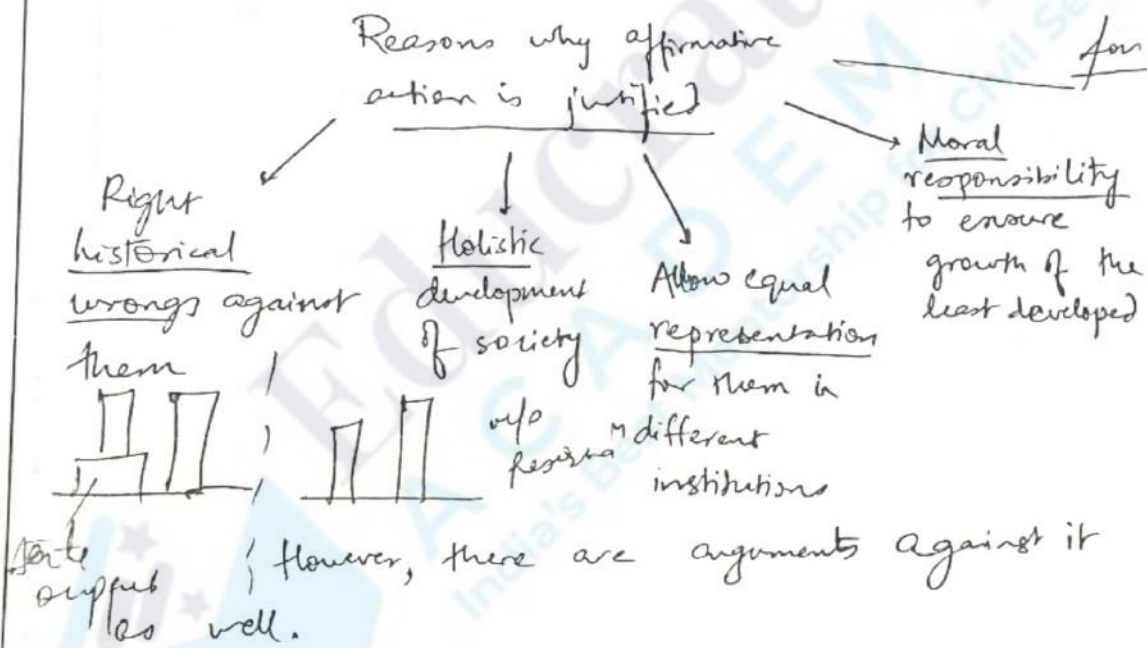 Reasons why affirmative
action is justified
for
Right
historical
wrongs against
them
Holistic
development
of society
Allow equal
representation
for them in
different
institutions
Moral
responsibility
to ensure
growth of the
least developed
w/o
Reservaⁿ
State
support
However, there are arguments against it
as well.
Educrat
ACADEM
India's Best Mentorship for Civil Se